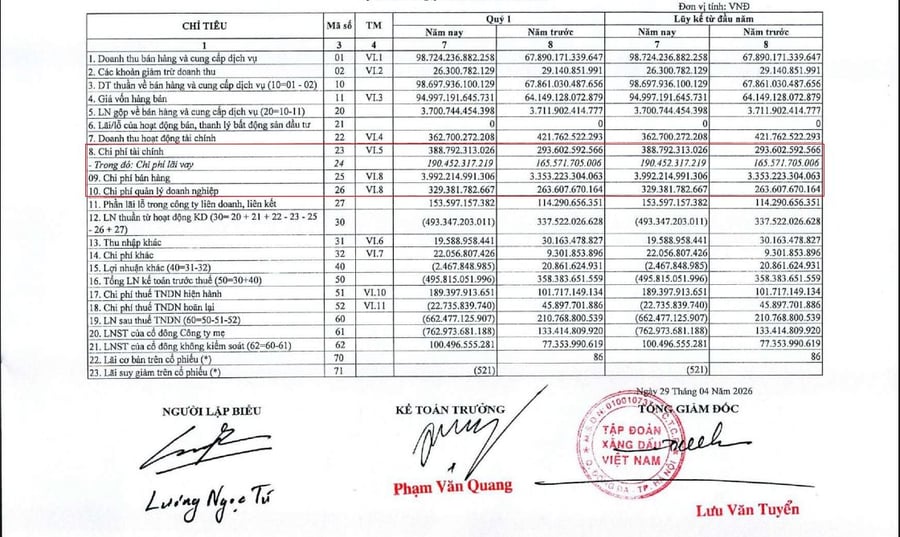 Đơn vị tính: VNĐ
CHỈ TIÊU Mã số TM Quý 1 Lũy kế từ đầu năm
Năm nay Năm trước Năm nay Năm trước
1 3 4 7 8 7 8
1. Doanh thu bán hàng và cung cấp dịch vụ 01 VI.1 98.724.236.882.258 67.890.171.339.647 98.724.236.882.258 67.890.171.339.647
2. Các khoản giảm trừ doanh thu 02 VI.2 26.300.782.129 29.140.851.991 26.300.782.129 29.140.851.991
3. DT thuần về bán hàng và cung cấp dịch vụ (10=01 - 02) 10 98.697.936.100.129 67.861.030.487.656 98.697.936.100.129 67.861.030.487.656
4. Giá vốn hàng bán 11 VI.3 94.997.191.645.731 64.149.128.072.879 94.997.191.645.731 64.149.128.072.879
5. LN gộp về bán hàng và cung cấp dịch vụ (20=10-11) 20 3.700.744.454.398 3.711.902.414.777 3.700.744.454.398 3.711.902.414.777
6. Lãi/lỗ của hoạt động bán, thanh lý bất động sản đầu tư 21 0 0 0 0
7. Doanh thu hoạt động tài chính 22 VI.4 362.700.272.208 421.762.522.293 362.700.272.208 421.762.522.293
8. Chi phí tài chính 23 VI.5 388.792.313.026 293.602.592.566 388.792.313.026 293.602.592.566
- Trong đó: Chi phí lãi vay 24 190.452.317.219 165.571.705.006 190.452.317.219 165.571.705.006
09. Chi phí bán hàng 25 VI.8 3.992.214.991.306 3.353.223.304.063 3.992.214.991.306 3.353.223.304.063
10. Chi phí quản lý doanh nghiệp 26 VI.8 329.381.782.667 263.607.670.164 329.381.782.667 263.607.670.164
11. Phần lãi lỗ trong công ty liên doanh, liên kết 27 153.597.157.382 114.290.656.351 153.597.157.382 114.290.656.351
12. LN thuần từ hoạt động KD (30= 20 + 21 + 22 - 23 - 25 - 26 + 27) 30 (493.347.203.011) 337.522.026.628 (493.347.203.011) 337.522.026.628
13. Thu nhập khác 31 VI.6 19.588.958.441 30.163.478.827 19.588.958.441 30.163.478.827
14. Chi phí khác 32 VI.7 22.056.807.426 9.301.853.896 22.056.807.426 9.301.853.896
15. Lợi nhuận khác (40=31-32) 40 (2.467.848.985) 20.861.624.931 (2.467.848.985) 20.861.624.931
16. Tổng LN kế toán trước thuế (50=30+40) 50 (495.815.051.996) 358.383.651.559 (495.815.051.996) 358.383.651.559
17. Chi phí thuế TNDN hiện hành 51 VI.10 189.397.913.651 101.717.149.134 189.397.913.651 101.717.149.134
18. Chi phí thuế TNDN hoãn lại 52 VI.11 (22.735.839.740) 45.897.701.886 (22.735.839.740) 45.897.701.886
19. LN sau thuế TNDN (60=50-51-52) 60 (662.477.125.907) 210.768.800.539 (662.477.125.907) 210.768.800.539
20. LNST của cổ đông Công ty mẹ 61 (762.973.681.188) 133.414.809.920 (762.973.681.188) 133.414.809.920
21. LNST của cổ đông không kiểm soát (62=60-61) 62 100.496.555.281 77.353.990.619 100.496.555.281 77.353.990.619
22. Lãi cơ bản trên cổ phiếu (*) 70 86 86
23. Lãi suy giảm trên cổ phiếu (*) 71 (521) (521)
Ngày 29 Tháng 04 Năm 2026
NGƯỜI LẬP BIỂU KẾ TOÁN TRƯỞNG TỔNG GIÁM ĐỐC
TẬP ĐOÀN
XĂNG DẦU
VIỆT NAM
Q. ĐỐNG ĐA - T.P HÀ NỘI
Lương Ngọc Tú Phạm Văn Quang Lưu Văn Tuyển